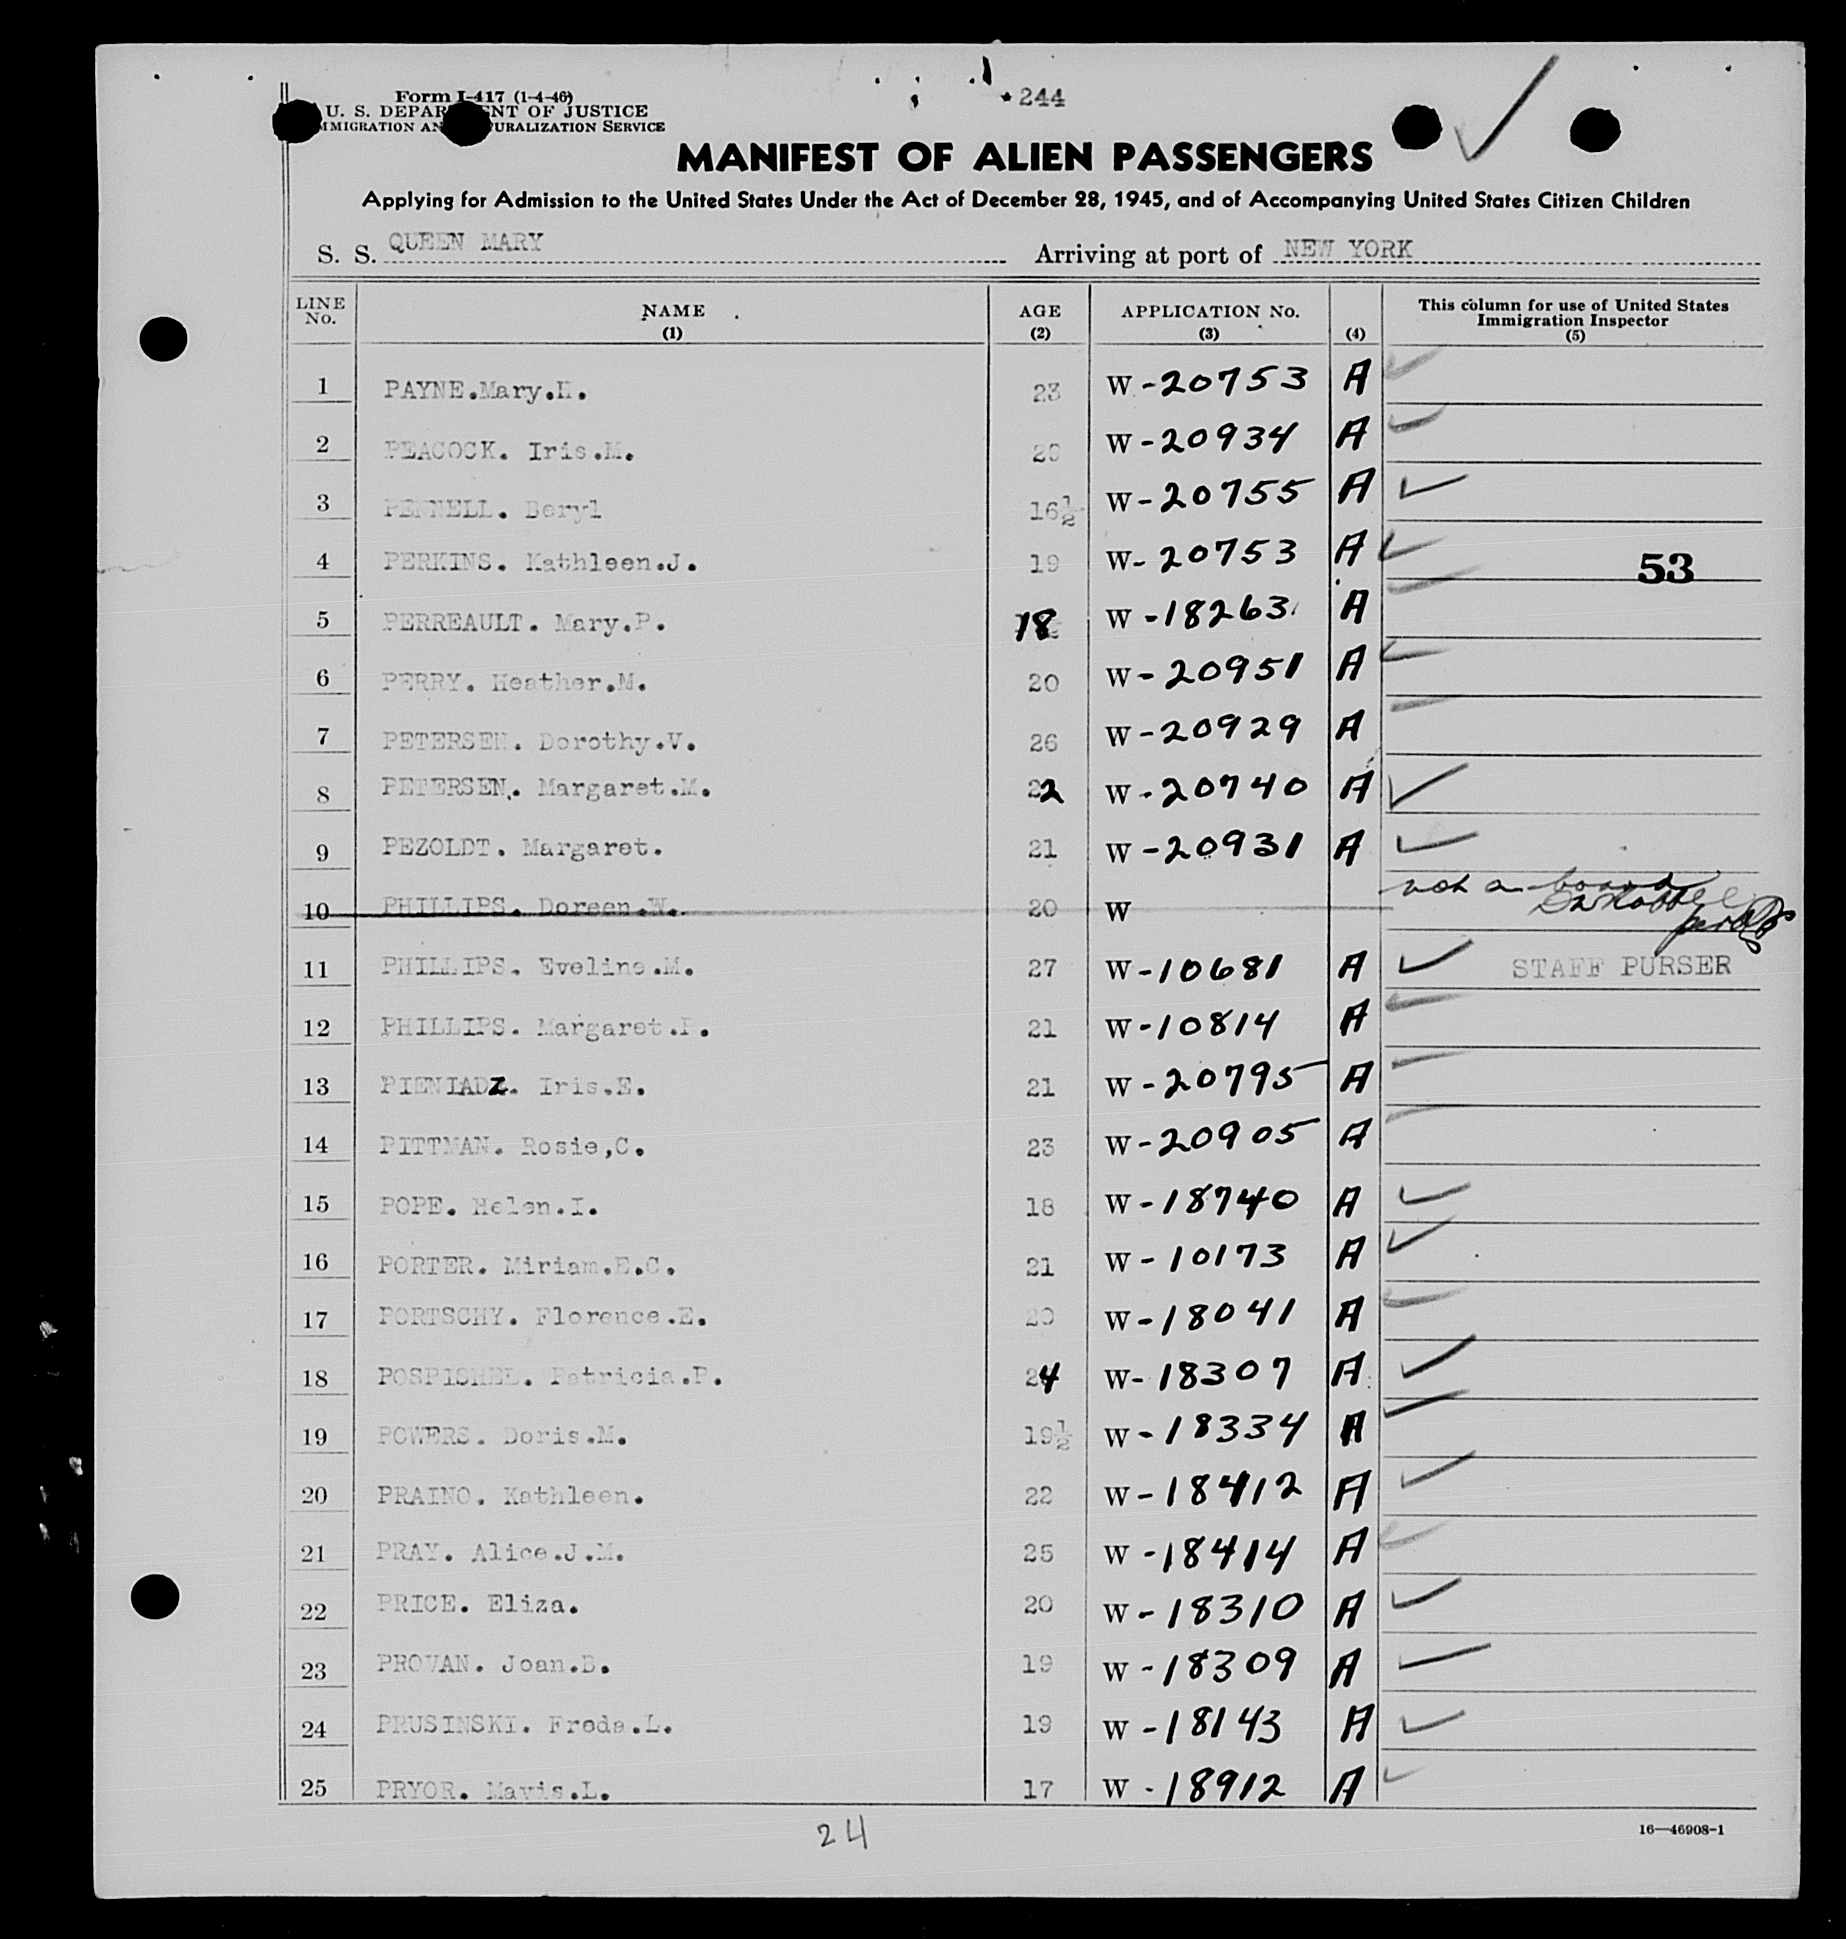 Form I-417 (1-4-46)
U. S. DEPARTMENT OF JUSTICE
IMMIGRATION AND NATURALIZATION SERVICE
244
MANIFEST OF ALIEN PASSENGERS
Applying for Admission to the United States Under the Act of December 28, 1945, and of Accompanying United States Citizen Children
S. S. QUEEN MARY Arriving at port of NEW YORK
LINE No. NAME (1) AGE (2) APPLICATION No. (3) (4) This column for use of United States Immigration Inspector (5)
1 PAYNE.Mary.H. 23 W-20753 A
2 PEACOCK. Iris.M. W-20934 A
3 PENNELL. Beryl 16½ W-20755 A
4 PERKINS. Kathleen.J. 19 W-20753 A
53
5 PERREAULT. Mary.P. 18 W-18263 A
6 PERRY. Heather.M. 20 W-20951 A
7 PETERSEN. Dorothy.V. 26 W-20929 A
8 PETERSEN. Margaret.M. 22 W-20740 A
9 PEZOLDT. Margaret. 21 W-20931 A
10 PHILLIPS. Doreen.W. 20 W not on board
11 PHILLIPS. Eveline.M. 27 W-10681 A STAFF PURSER
12 PHILLIPS. Margaret. 21 W-10814 A
13 PIENIADZ. Iris.E. 21 W-20795 A
14 PITTMAN. Rosie,C. 23 W-20905 A
15 POPE. Helen.I. 18 W-18740 A
16 PORTER. Miriam.E.C. 21 W-10173 A
17 PORTSCHY. Florence.E. 20 W-18041 A
18 Patricia.P. 24 W-18307 A
19 POWERS. Doris.M. 19½ W-18334 A
20 PRAINO. Kathleen. 22 W-18412 A
21 PRAY. Alice.J.M. 25 W-18414 A
22 PRICE. Eliza. 20 W-18310 A
23 PROVAN. Joan.B. 19 W-18309 A
24 PRUSINSKI. Freda.L. 19 W-18143 A
25 PRYOR. Mavis.L. 17 W-18912 A
24
16—46908-1